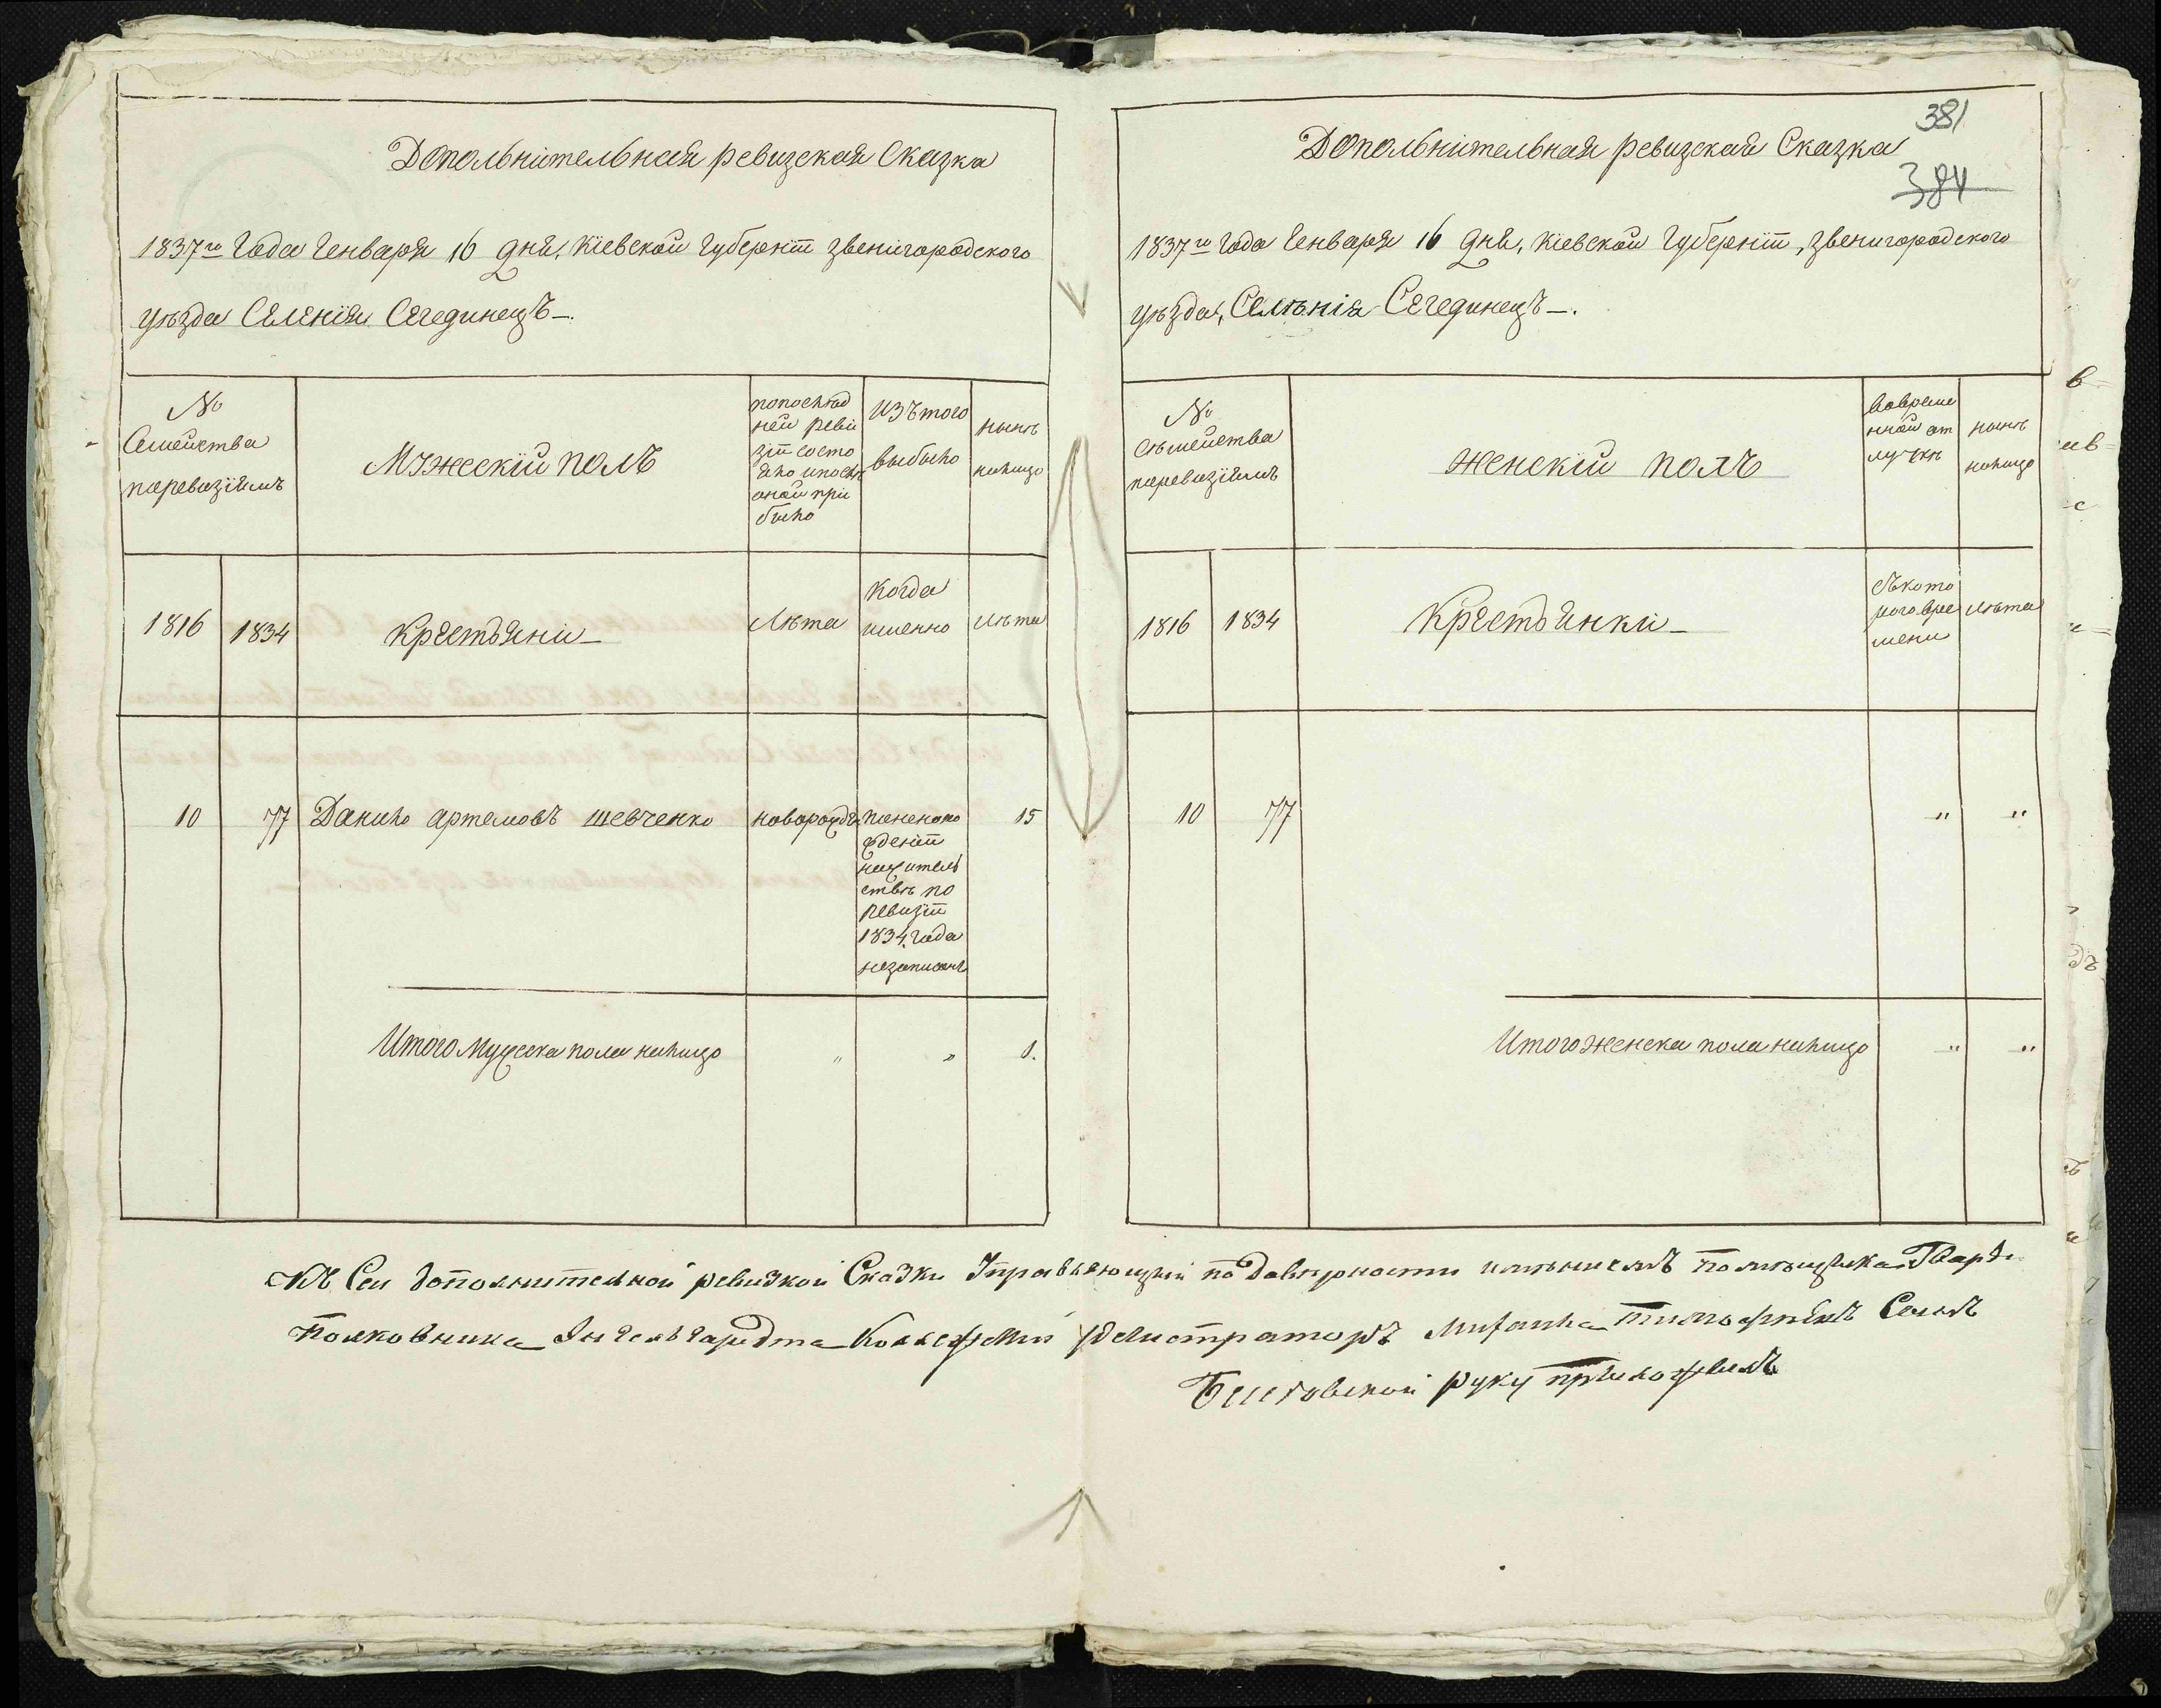 Допольнительная ревизская Сказка
1837го Года Генваря 16 дня, Кіевской Губерніи Звенигородского
уѣзда Селенія Сегединецъ —
№
Семейства
поревизіямъ
Мужескій полъ
попослѣд
ней реви
зіи состо
яло ипослѣ
оной при
было
Изъ того
выбыло
нынѣ
налицо
1816
1834
Крестьяни —
Лѣта
Когда
именно
Лѣта
10
77
Данило Артемовъ Шевченко
новорожд
15
ревизіи
1834 года
незаписанъ
Итого Мужеска пола налицо
"
"
1.
381
Допольнительная ревизская Сказка
384
1837го Года Генваря 16 дня, Кіевской Губерніи, Звенигородского
уѣзда, Селѣнія Сегединецъ — .
№
Сѣмейства
поревизіямъ
Женскій полъ
Вовреме
нной от
лучкѣ
нынѣ
налицо
1816
1834
Крестьянки —
Съкото
рого вре
мени
лѣта
10
77
"
"
Итого Женска пола налицо
"
"
Къ Сеи дополнительной ревизкой Сказки Управляющій по Довѣрности имѣниемъ помѣщика Гварди
Полковника Энгельгардта Колежскій регистраторъ Михаила Тимофѣевъ Сынъ
руку приложилъ